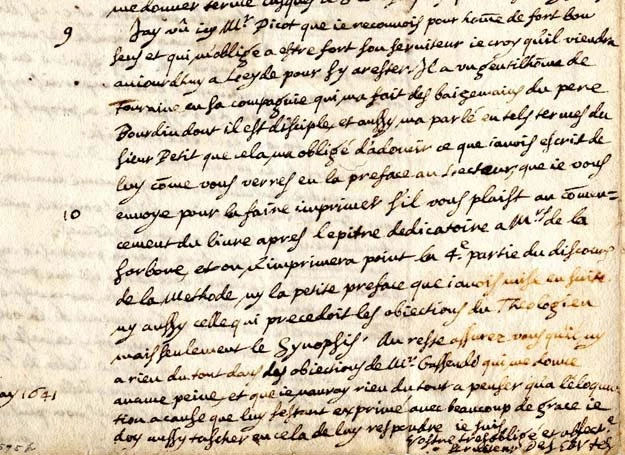 me donner terme jusques a
9 J'ay vû icy Mr Picot que ie reconnois pour hõme de fort bon
sens et qui m'oblige a estre fort son serviteur ie croy qu'il viendra
auiourdhuy a Leyde pour sy arester. Il a vn gentilhõme de
Touraine en sa compagnie qui ma fait des baizemains du pere
Bourdin dont il est disciple, et aussy ma parlé en tels termes du
sieur Petit que cela ma obligé d'adoucir ce que iavois escrit de
luy cõme vous verres en la preface au Lecteur, que ie vous
10 envoye pour la faire imprimer s'il vous plaist au cõmen=
cement du livre apres l'epitre dedicatoire a Mrs de la
sorbone, et on n'imprimera point la 4e partie du discours
de la Methode, ny la petite preface que iavois mise en suite
ny aussy celle qui precedoit les obiections du Theologien
mais seulement le Synopsis. Au reste assurez vous qu'il ny
a rien du tout dans les obiections de Mr Gassendo qui me donne
aucune peine, et que ie nauray rien du tout a penser qua l'eloqu
tion a cause que luy sestant exprimé avec beaucoup de grace ie
ay 1641
doy aussy tascher en cela de luy respondre ie suis
Vostre tres obligé et affect.é
serviteur Descartes